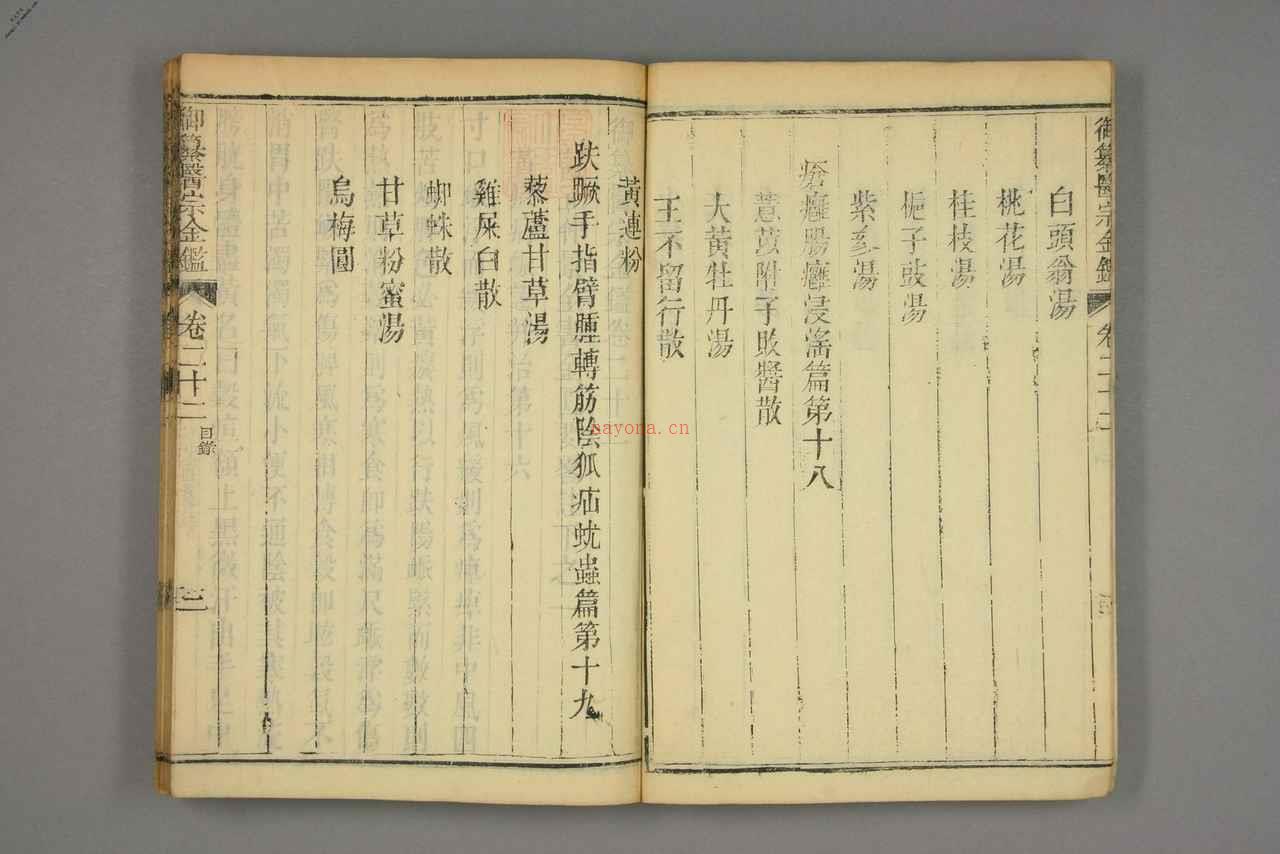 白頭翁湯
桃花湯
桂枝湯
梔子豉湯
紫參湯
瘡癰腸癰浸淫篇第十八
薏苡附子敗醬散
大黃牡丹湯
王不留行散
黃連粉
趺蹶手指臂腫轉筋陰狐疝蚘蟲篇第十九
藜蘆甘草湯
雞屎白散
蜘蛛散
甘草粉蜜湯
烏梅圓
御纂醫宗金鑑
卷二十二
目錄
三
nayona.cn